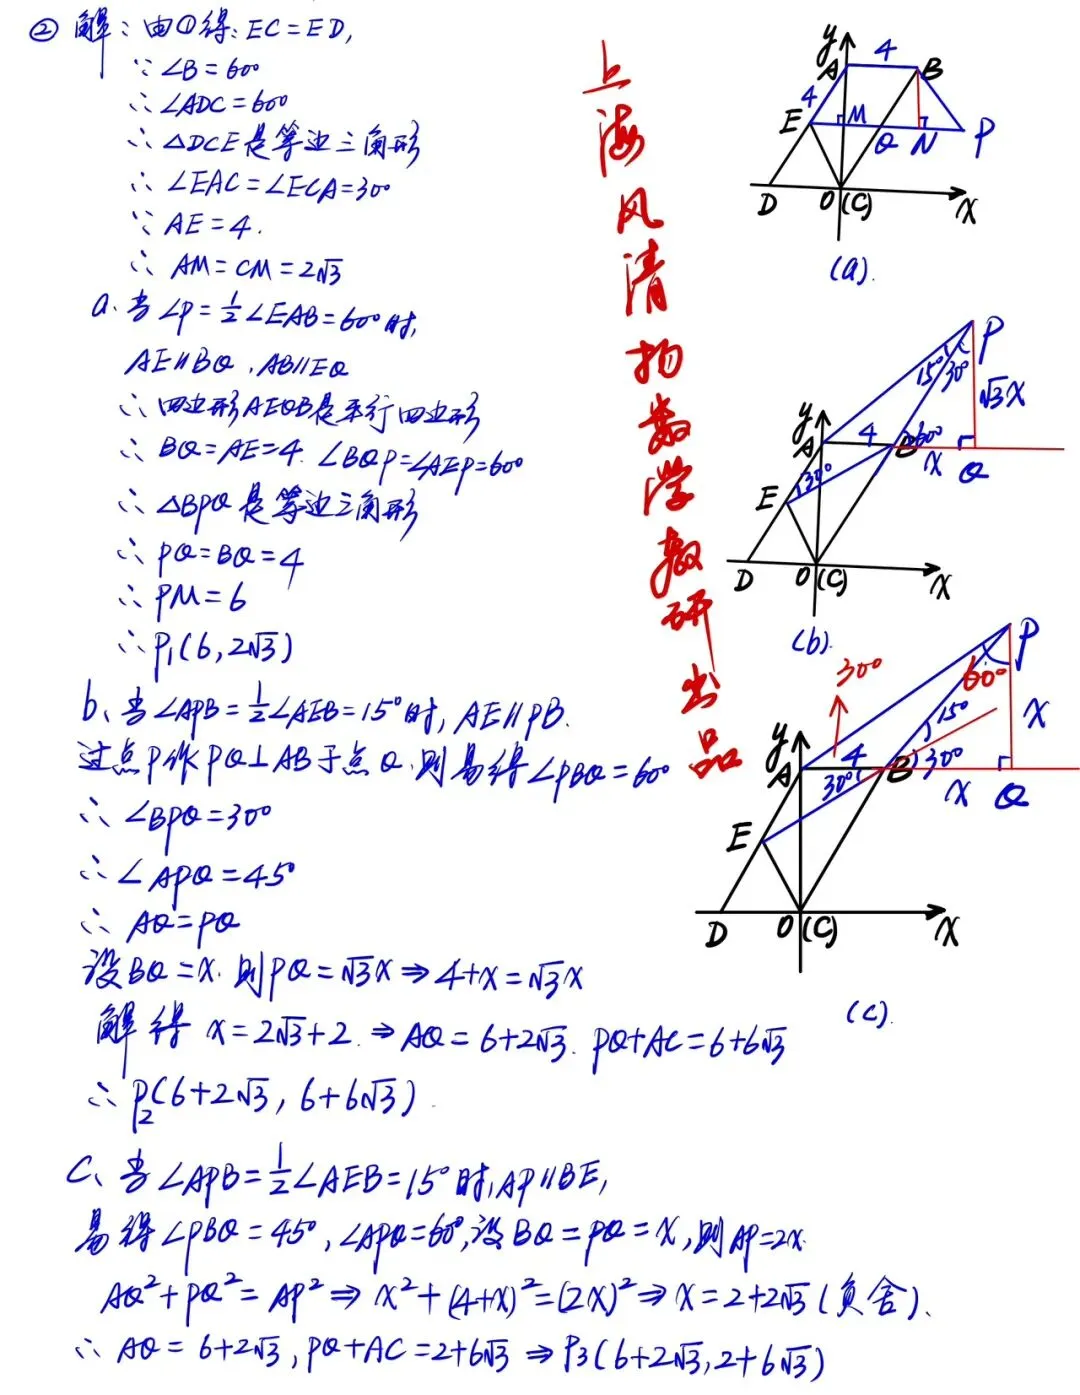 ② 解：由①得：EC=ED，
∵∠B=60°
∴∠ADC=60°
∴△DCE是等边三角形
∴∠EAC=∠ECA=30°
∵AE=4.
∴AM=CM=2√3
a. 当∠P=½∠EAB=60°时，
AE∥BQ，AB∥EQ
∴四边形AEQB是平行四边形
∴BQ=AE=4. ∠BQP=∠AEP=60°
∴△BPQ是等边三角形
∴PQ=BQ=4
∴PM=6
∴P₁(6, 2√3)
b、当∠APB=½∠AEB=15°时，AE∥PB.
过点P作PQ⊥AB于点Q.则易得∠PBQ=60°
∴∠BPQ=30°
∴∠APQ=45°
∴AQ=PQ
设BQ=x. 则PQ=√3x⇒4+x=√3x
解得 x=2√3+2. ⇒AQ=6+2√3. PQ+AC=6+6√3
∴P₂(6+2√3, 6+6√3).
C、当∠APB=½∠AEB=15°时，AP∥BE，
易得∠PBQ=45°，∠APQ=60°，设BQ=PQ=x，则AP=2x.
AQ²+PQ²=AP²⇒x²+(4+x)²=(2x)²⇒x=2+2√3(负舍).
∴AQ=6+2√3，PQ+AC=2+6√3⇒P₃(6+2√3, 2+6√3)
上海风清扬数学教研出品
y
4
A
B
4
E
M
Q
N
P
D
O(C)
x
(a).
P
15°
30°
√3x
y
A
4
B
60°
x
Q
E
30°
D
O(C)
x
(b).
P
30°
60°
15°
x
y
A
4
B
30°
30°
x
Q
E
D
O(C)
x
(c).